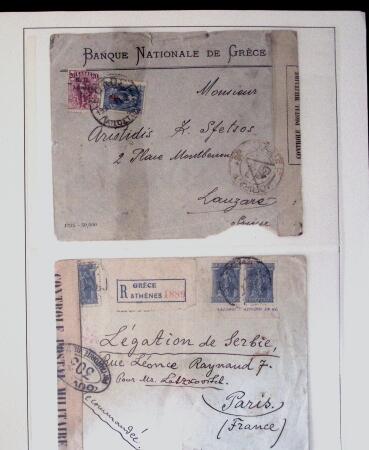 BANQUE NATIONALE DE GRÈCE
Monsieur
Aristidis Z. Sfetsos
2 Place Montbenon
Lauzane
Suisse
CONTROLE POSTAL MILITAIRE
GRÈCE
R ATHÈNES 1889
Légation de Serbie,
Rue Léonce Raynaud 7.
Pour Mr.
Paris.
(France)
Recommandée
CONTROLE POSTAL MILITAIRE
303